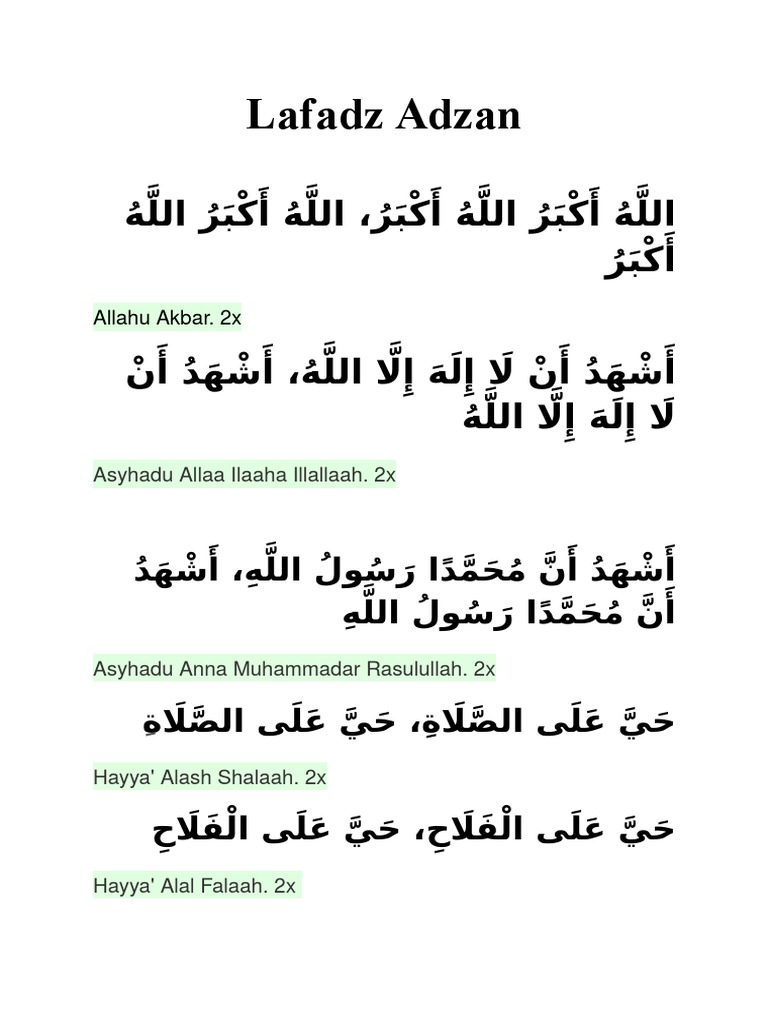 Lafadz Adzan
اللَّهُ أَكْبَرُ اللَّهُ أَكْبَرُ، اللَّهُ أَكْبَرُ اللَّهُ
أَكْبَرُ
Allahu Akbar. 2x
أَشْهَدُ أَنْ لَا إِلَهَ إِلَّا اللَّهُ، أَشْهَدُ أَنْ
لَا إِلَهَ إِلَّا اللَّهُ
Asyhadu Allaa Ilaaha Illallaah. 2x
أَشْهَدُ أَنَّ مُحَمَّدًا رَسُولُ اللَّهِ، أَشْهَدُ
أَنَّ مُحَمَّدًا رَسُولُ اللَّهِ
Asyhadu Anna Muhammadar Rasulullah. 2x
حَيَّ عَلَى الصَّلَاةِ، حَيَّ عَلَى الصَّلَاةِ
Hayya' Alash Shalaah. 2x
حَيَّ عَلَى الْفَلَاحِ، حَيَّ عَلَى الْفَلَاحِ
Hayya' Alal Falaah. 2x